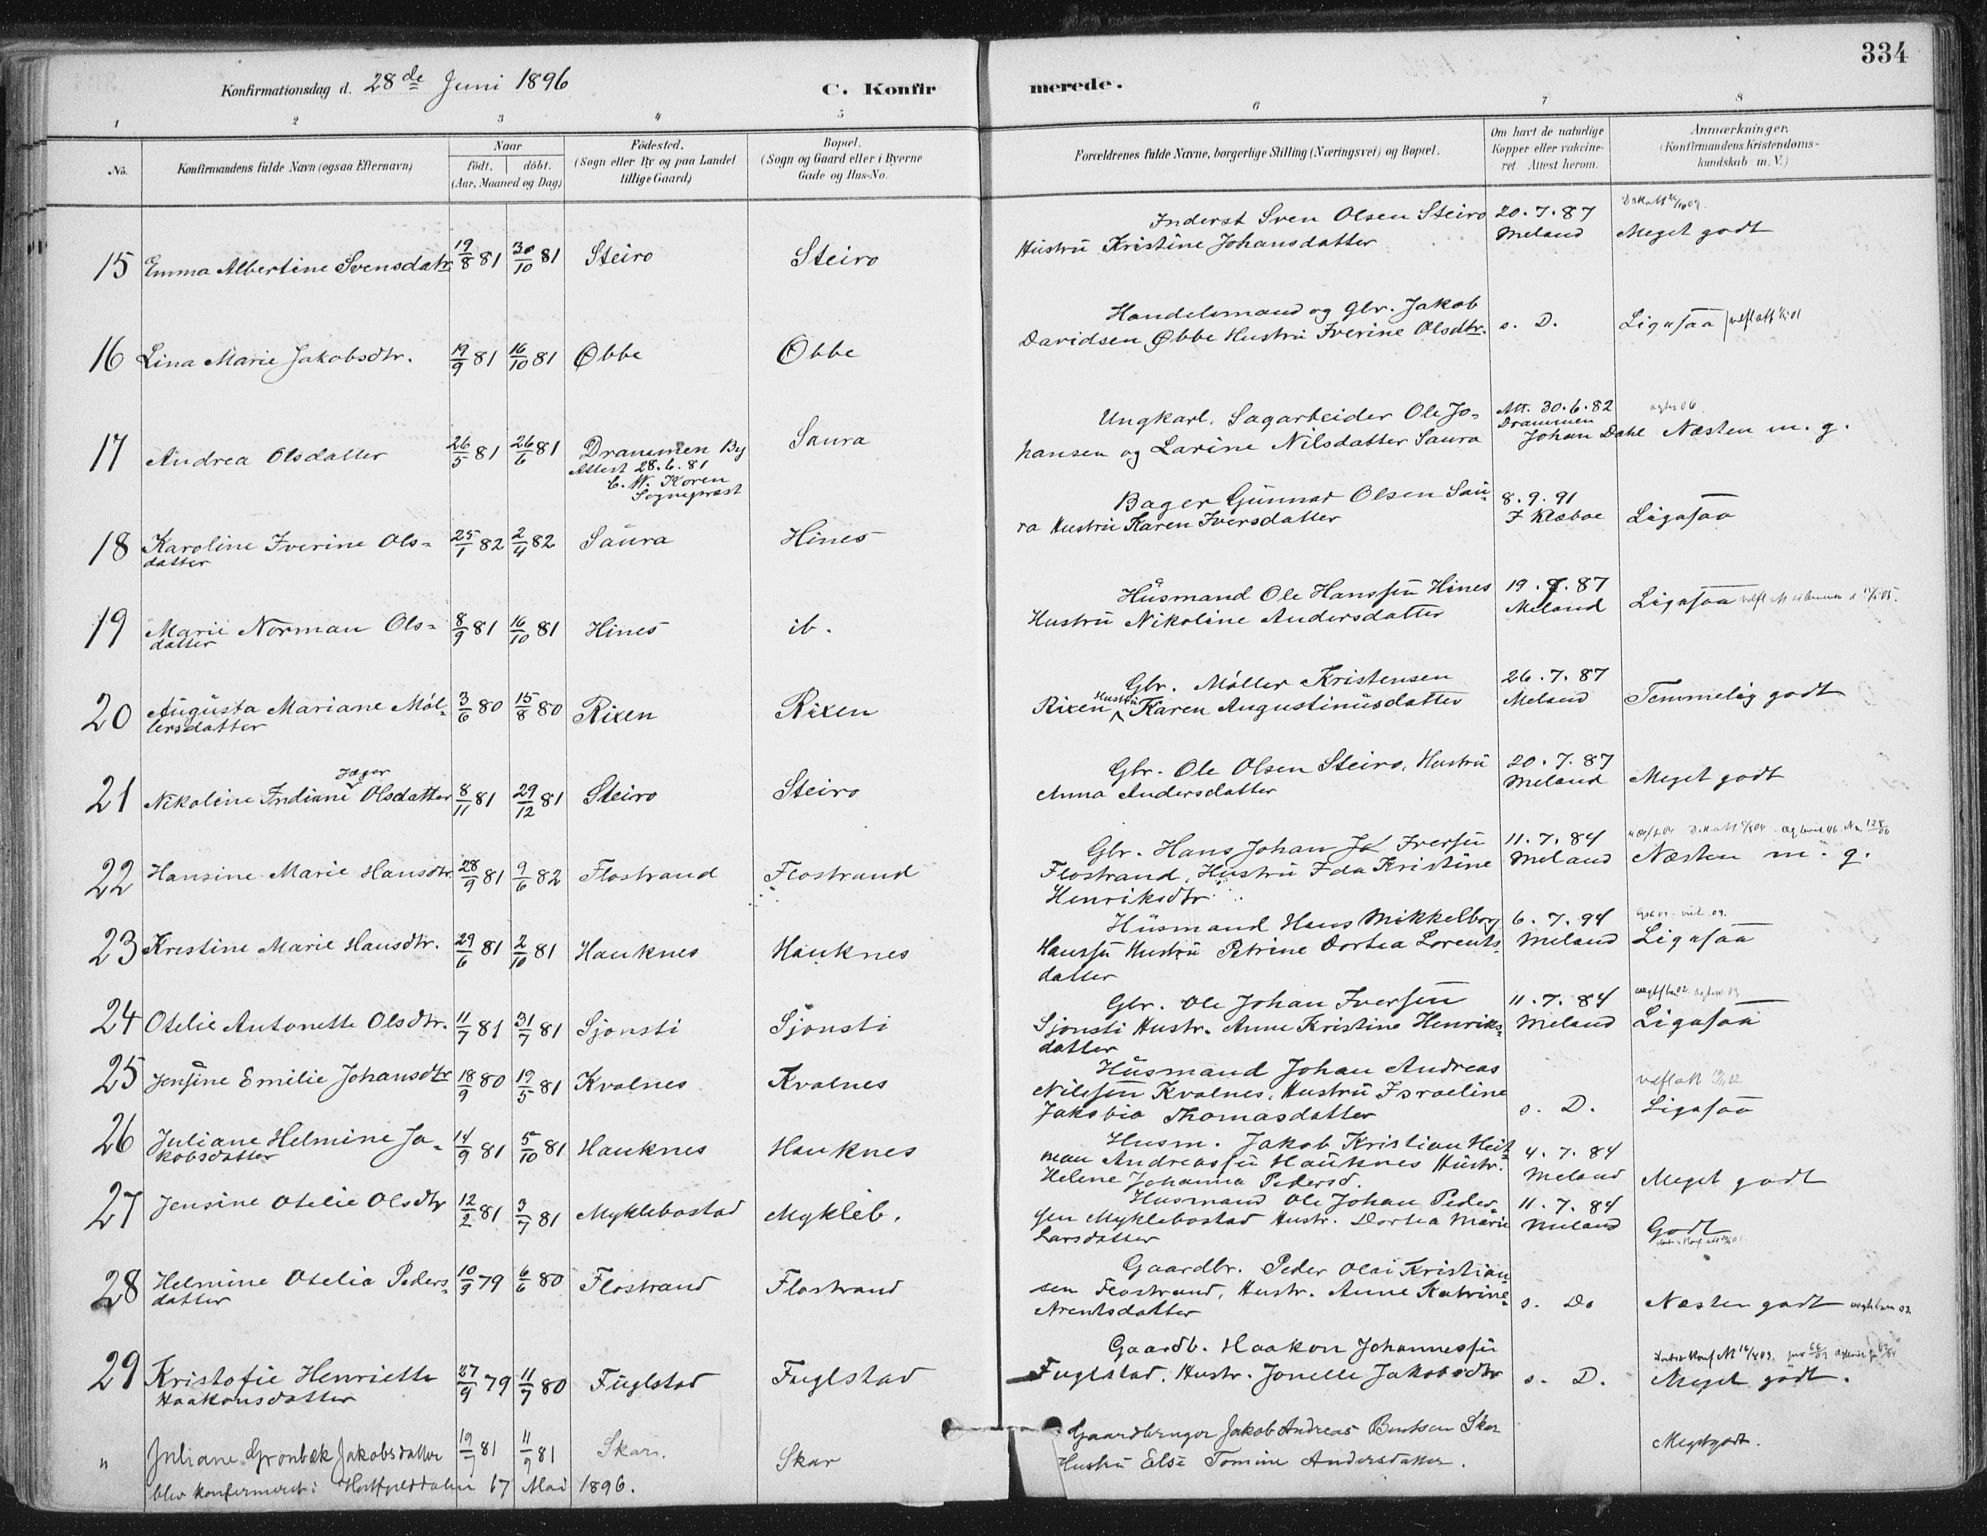 334
Konfirmationsdag d. 28de Juni 1896
C. Konfirmerede.
1 2 3 4 5 6 7 8
No.
Konfirmandens fulde Navn (ogsaa Efternavn)
Naar
födt. döbt.
(Aar, Maaned og Dag)
Födested.
(Sogn eller By og paa Landet
tillige Gaard)
Bopæl.
(Sogn og Gaard eller i Byerne
Gade og Hus-No.
Forældrenes fulde Navne, borgerlige Stilling (Næringsvei) og Bopæl.
Om havt de naturlige
Kopper eller vakcine-
ret. Attest herom.
Anmærkninger.
(Konfirmandens Kristendoms-
kundskab m. V.)
15 Emma Albertine Svensdatr 19/8 81 30/10 81 Steiro Steiro
Inderst Sven Olsen Steiro 20.7.87
Hustru Kristine Johansdatter Meland Meget godt
16 Lina Marie Jakobsdtr. 19/9 81 16/10 81 Øbbe Øbbe
Handelsmand og Gbr. Jakob
Davidsen Øbbe Hustru Iverine Olsdtr. s. D. Ligesaa
17 Andrea Olsdatter 26/5 81 26/6 81 Drammen By Saura
Attest 28.6.81
C. W. Koren
Sognepræst
Ungkarl. Sagarbeider Ole Jo- Att. 30.6.82
Drammen
hansen og Larine Nilsdatter Saura Johan Dahl Næsten m. g.
18 Karoline Iverine Ols- 25/1 82 2/4 82 Saura Hines
datter
Bager Gunnar Olsen Sau- 8.9.91
ra Hustru Karen Iversdatter J Klæboe Ligesaa
19 Marie Norman Ols- 8/9 81 16/10 81 Hines ib.
datter
Husmand Ole Hanssen Hines 19.7.87
Hustru Nikoline Andersdatter Meland Ligesaa
20 Augusta Mariane Møl- 3/6 80 15/8 80 Rixen Rixen
lersdatter
Gbr. Møller Kristensen 26.7.87
Rixen Hustru Karen Augustinusdatter Meland Temmelig godt
21 Nikoline Indiane Jæger Olsdatter 8/11 81 29/12 81 Steiro Steiro
Gbr. Ole Olsen Steiro, Hustru 20.7.87
Anna Andersdatter Meland Meget godt
22 Hansine Marie Hansdtr 28/9 81 9/6 82 Flostrand Flostrand
Gbr. Hans Johan Iversen 11.7.84
Flostrand, Hustru Ida Kristine Meland Næsten m. g.
Henriksdtr
23 Kristine Marie Hansdtr. 29/6 81 2/10 81 Hauknes Hauknes
Husmand Hans Mikkelborg 6.7.94
Hanssen Hustru Petrine Dortea Lorents- Meland Ligesaa
datter
24 Otelie Antonette Olsdtr. 11/7 81 31/7 81 Sjonsti Sjonsti
Gbr. Ole Johan Iversen 11.7.84
Sjonsti Hustr. Anne Kristine Henriks- Meland Ligesaa
datter
25 Jensine Emilie Johansdtr 18/9 80 19/5 81 Kvalnes Kvalnes
Husmand Johan Andreas
Nilssen Kvalnes, Hustru Israeline
Jakobia Thomasdatter s. D. Ligesaa
26 Juliane Helmine Ja- 14/9 81 5/10 81 Hauknes Hauknes
kobsdatter
Husm. Jakob Kristian Heit-
man Andreassen Hauknes Hustr. 4.7.84
Helene Johanna Pedersd. Meland Meget godt
27 Jensine Otelie Olsdtr 12/2 81 3/7 81 Myklebostad Mykleb.
Husmand Ole Johan Peder- 11.7.84
sen Myklebostad Hustr. Dortea Marie Meland Godt
Larsdatter
28 Helmine Otelia Peders- 10/9 79 6/6 80 Flostrand Flostrand
datter
Gaardbr. Peder Olai Kristian-
sen Flostrand, Hustr. Anne Katrine
Arentsdatter s. D. Næsten godt
29 Kristofie Henriette 27/9 79 11/7 80 Fuglstad Fuglstad
Haakonsdatter
Gaardb. Haakon Johannessen
Fuglstad, Hustr. Jonelle Jakobsdtr s. D. Meget godt.
" Juliane Grønbæk Jakobsdatter 19/7 81 11/9 81 Skar. Skar
blev konfirmeret i Hatfjelddalen 17 Mai 1896.
Gaardbruger Jakob Andreas Bentsen Skar
Hustru Else Tomine Andersdatter. Meget godt.